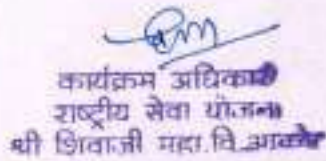 कार्यक्रम अधिकारी
राष्ट्रीय सेवा योजना
श्री शिवाजी महा.वि.अकोट